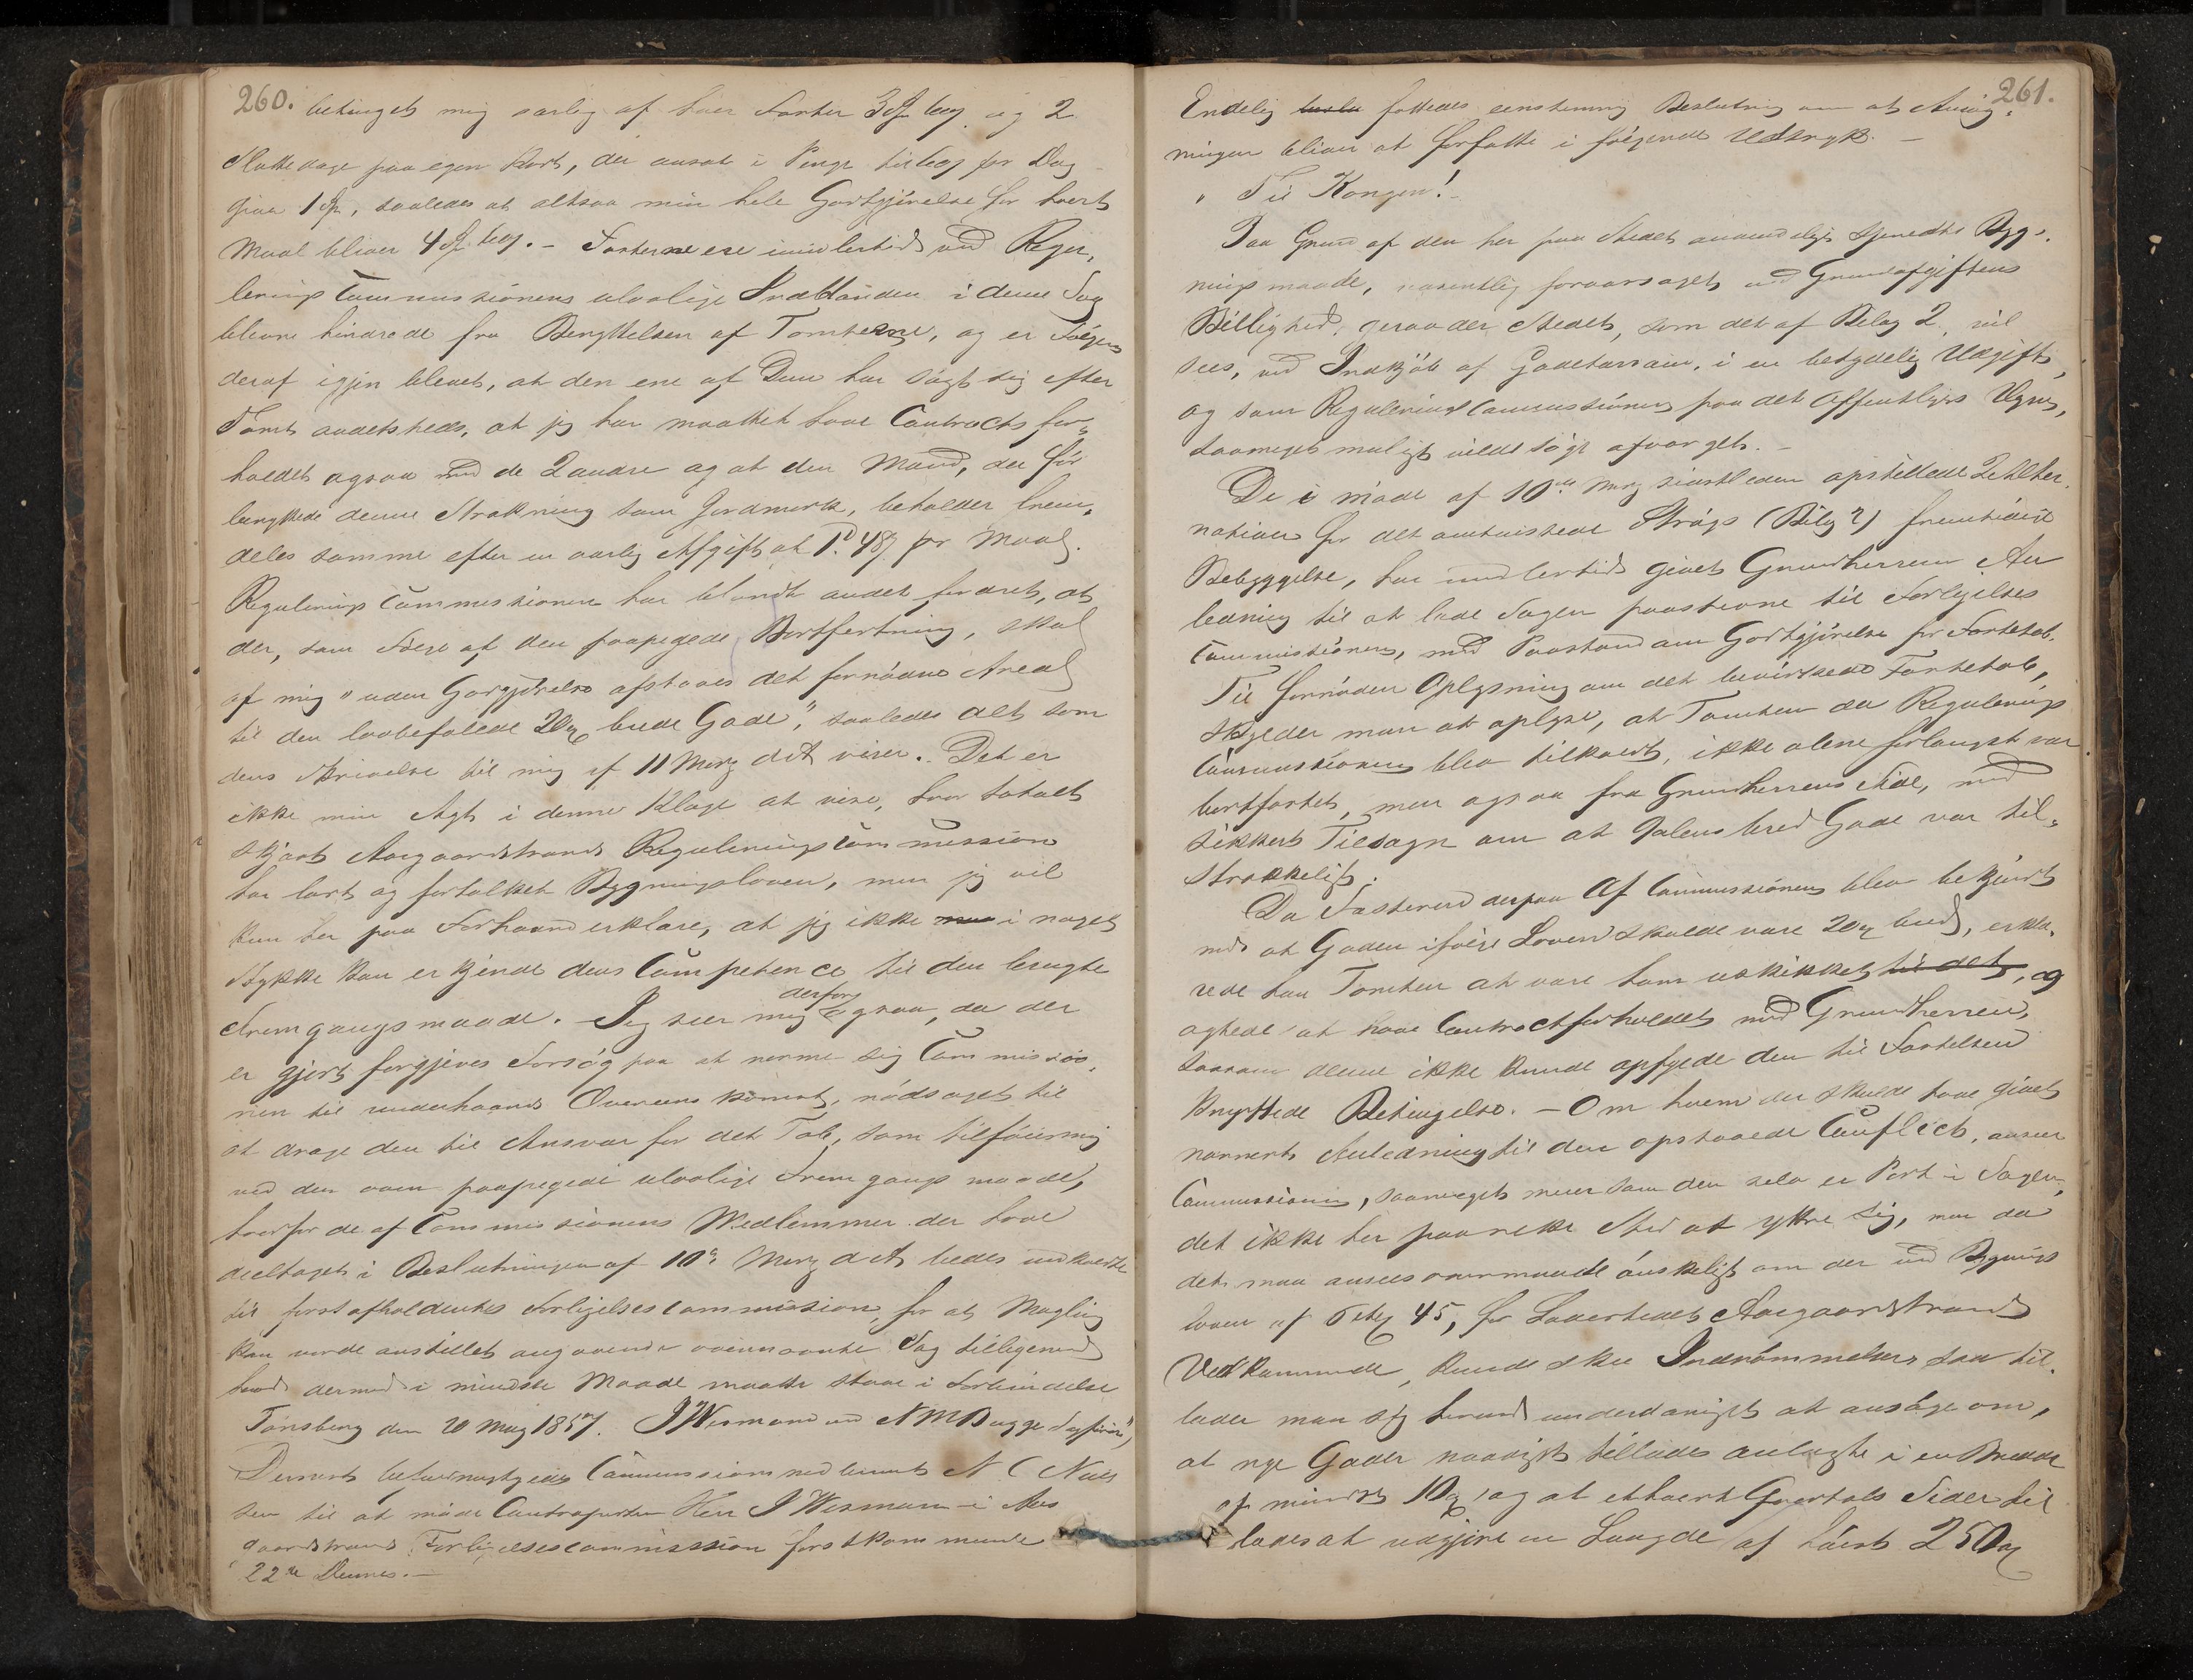 260.
betinget mig særlig af hver Fæster 3 Spd aarlig og 2
Slottedage paa egen Kost, der ansat i Penge til 60 s pr Dag
giver 1 Spd, saaledes at altsaa min hele Godtgjørelse for hvert
Maal bliver 4 Spd aarlig. – Fæsterne ere imidlertid ved Regu-
lerings Commissionens ulovlige Indblanden i denne Sag
blevne hindrede fra Benyttelsen af Tomterne, og er Følgen
deraf igjen blevet, at den ene af Dem har søgt sig efter
Tomt andetsteds, at jeg har maattet hæve Contracts for-
holdet ogsaa med de 2 andre og at den Mand, der før
benyttede denne Strækning som Jordmark, beholder frem-
deles samme efter en aarlig Afgift at 1 D. 48 s pr Maal.
Regulerings Commissionen har blandt andet fordret, at
der, som Følge af den paapegede Bortfæstning, skal
af mig "uden Godgjørelse afstaaes det fornødne Areal
til den lovbefalede 20 al brede Gade", saaledes alt som
dens Skrivelse til mig af 11 Marz d A viser. Det er
ikke min Agt i denne Klage at vise, hvor totalt
skjævt Aasgaardstrands Reguleringscommission
har lært og fortolket Bygningsloven, men jeg vil
kun her paa Forhaand erklære, at jeg ikke i noget
Stykke kan erkjende dens Competence til den brugte
Fremgangsmaade. – Jeg seer mig derfor ogsaa, da der
er gjort forgjeves Forsøg paa at nærme sig Commissio-
nen til underhaands Overenskomst, nødsaget til
at drage den til Ansvar for det Tab, som tilføies mig
ved den oven paapegede ulovlige Fremgangsmaade,
hvorfor de af Commissionens Medlemmer der have
deeltaget i Beslutningen af 10de Marz d A bedes indkaldte
til først afholdendes Forligelsescommission, for at Mægling
kan vorde anstillet angaaende ovennævnte Sag tilligemed
hvad dermed i mindste Maade maatte staae i Forbindelse
Tønsberg den 20 Maj 1857. J Wesmann ved N M Bugge Sagfører"
Dernæst befuldmægtigedes Commissionsmedlemmet N C Niel
sen til at møde Contraparten Herr J Wesmann i Aas
gaardstrands Forligelsescommission førstkommende
22de Dennes. –
261.
Endelig fattedes eenstemmig Beslutning om at Ansøg-
ningen bliver at forfatte i følgende Udtryk. –
" Til Kongen! –
Paa Grund af den her paa Stedet almindelige spredte Byg-
ningsmaade, væsentlig foraarsaget ved Grundafgiftens
Billighed, geraader Stedet, som det af Bilag 2 vil
sees, ved Indkjøb af Gadeterrain, i en betydelig Udgift,
og som Regulerings Commissionen paa det Offentliges Vegne,
saameget muligt vilde søge afværget. –
De i Møde af 10de Marz sidstleden opstillede 2 Alter-
nativer for det omtvistede Strøgs (Bilag 2) fremtidige
Bebyggelse, har imidlertid givet Grundherren An
ledning til at lade Sagen paastevne til Forligelses
Commissionen, med Paastand om Godtgjørelse for Festetab.
Til fornøden Oplysning om det bevirkede Festetab,
skyder man at oplyse, at Tomten da Regulerings
Commissionen blev tilkaldt, ikke alene forlængst var
bortfæstet, men ogsaa fra Grundherrens Side, med
sikkert Tilsagn om at 9 alens bred Gade var til-
strækkelig.
Da Fæsteren derpaa af Commissionen blev bekjendt
med at Gaden ifølge Loven skulde være 20 al bred, erklæ-
rede han Tomten at være ham uskikket til det, og
agtede at hæve Contractforholdet med Grundherren,
saasom denne ikke kunde opfylde den til Fæstelsen
knyttede Betingelse. – Om hvem der skulde have givet
nærmest Anledning til den opstaaede Conflict, anseer
Commissionen, saameget meer som den selv er Part i Sagen,
det ikke her paa rette Sted at yttre sig, men da
det maa ansees overmaade ønskeligt om der ved Bygnings
loven af 6 Sept 45, for Ladestedet Aasgaardstrands
Vedkommende, kunde skee Indrømmelser saa til-
lader man sig herved underdanigst at ansøge om,
at nye Gader naadigst tillades anlagte i en Bredde
af mindst 10 al, og at ethvert Qvartals Sider til
lades at udgjøre en Længde af høist 250 al